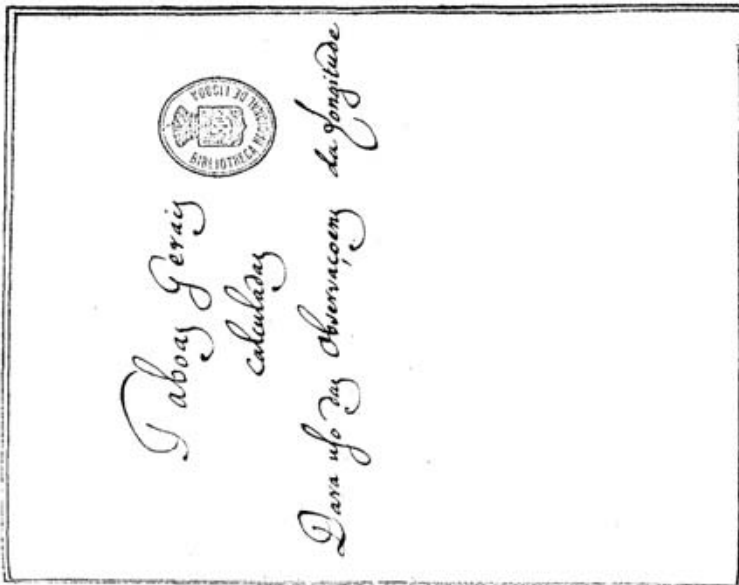 Taboas Gerais
calculadas
Para uso das Observaçoens da Longitude
BIBLIOTHECA NACIONAL DE LISBOA